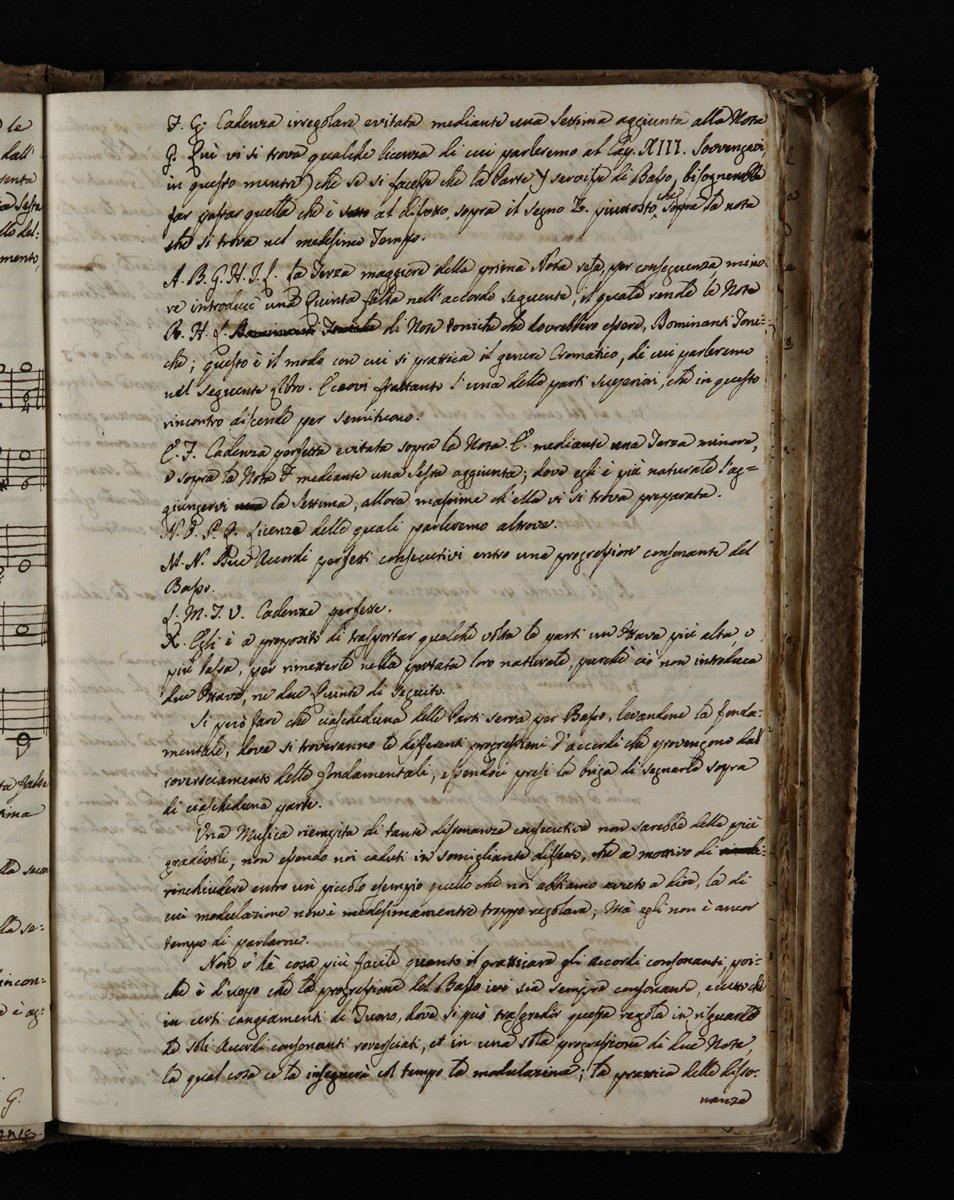 F. G. Cadenza irregolare evitata mediante una Settima aggiunta alla Nota
G. Quì vi si trova qualche licenza di cui parleremo al Cap. XIII. Sovvengavi,
in questo mentre, che se si facesse che la Parte servisse di Basso, bisognerebbe
far passar quella che è al disotto, sopra il segno piuttosto, che sopra la nota
che si trova nel medesimo Tempo.
A. B. G. H. J. L. la Terza maggiore della prima Nota resa, per conseguenza, mino-
re introduce una Quinta falsa nell'accordo seguente, il quale rende le Note
B. H. L. di Note toniche che dovrebbero essere, Dominanti Toni=
che; questo è il modo con cui si prattica il genere Cromatico, di cui parleremo
nel seguente Libro. Eccovi frattanto l'una delle parti superiori, che in questo
rincontro discende per semituono.
E. F. Cadenza perfetta evitata sopra la Nota. E. mediante una Terza minore,
e sopra la Nota F mediante una Sesta aggiunta; dove egli è più naturale l'ag=
giungervi la Settima, allora massime ch'ella vi si trova preparata.
N. O. P. Q. Licenze delle quali parleremo altrove.
M. N. Due Accordi perfetti consecutivi entro una progression consonante del
Basso.
L. M. T. V. Cadenze perfette.
X. Egli è a proposito di trasportar qualche volta le parti un'Ottava più alta o
più bassa, per rimetterle nella portata loro naturale, purchè ciò non introduca
due Ottave, nè due Quinte di seguito.
Si può fare che ciascheduna delle Parti serva per Basso, levandone la fonda-
mentale, dove si troveranno le differenti progressioni d'accordi che provengono dal
rovesciamento delle fondamentali, essendoci presi la briga di segnarle sopra
di ciascheduna parte.
Una Musica riempita di tante dissonanze consecutive non sarebbe delle più
gradevoli, non essendo noi caduti in somigliante difetto, che a motivo di
rinchiudere entro un piccolo esempio quello che noi abbiamo avuto a dire, la di
cui modulazione non è medesimamente troppo regolare; Mà egli non è ancor
tempo di parlarne.
Non v'hà cosa più facile quanto il pratticare gli accordi consonanti, poi-
che è d'uopo che la progressione del Basso ivi sia sempre consonante, eccetto che
in certi cangiamenti di Tuono, dove si può trasgredir questa regola in riguardo
de soli Accordi consonanti rovesciati, et in una sola progressione di due Note,
la qual cosa ce la insegnerà col tempo la modulazione; la prattica delle disso-
nanze